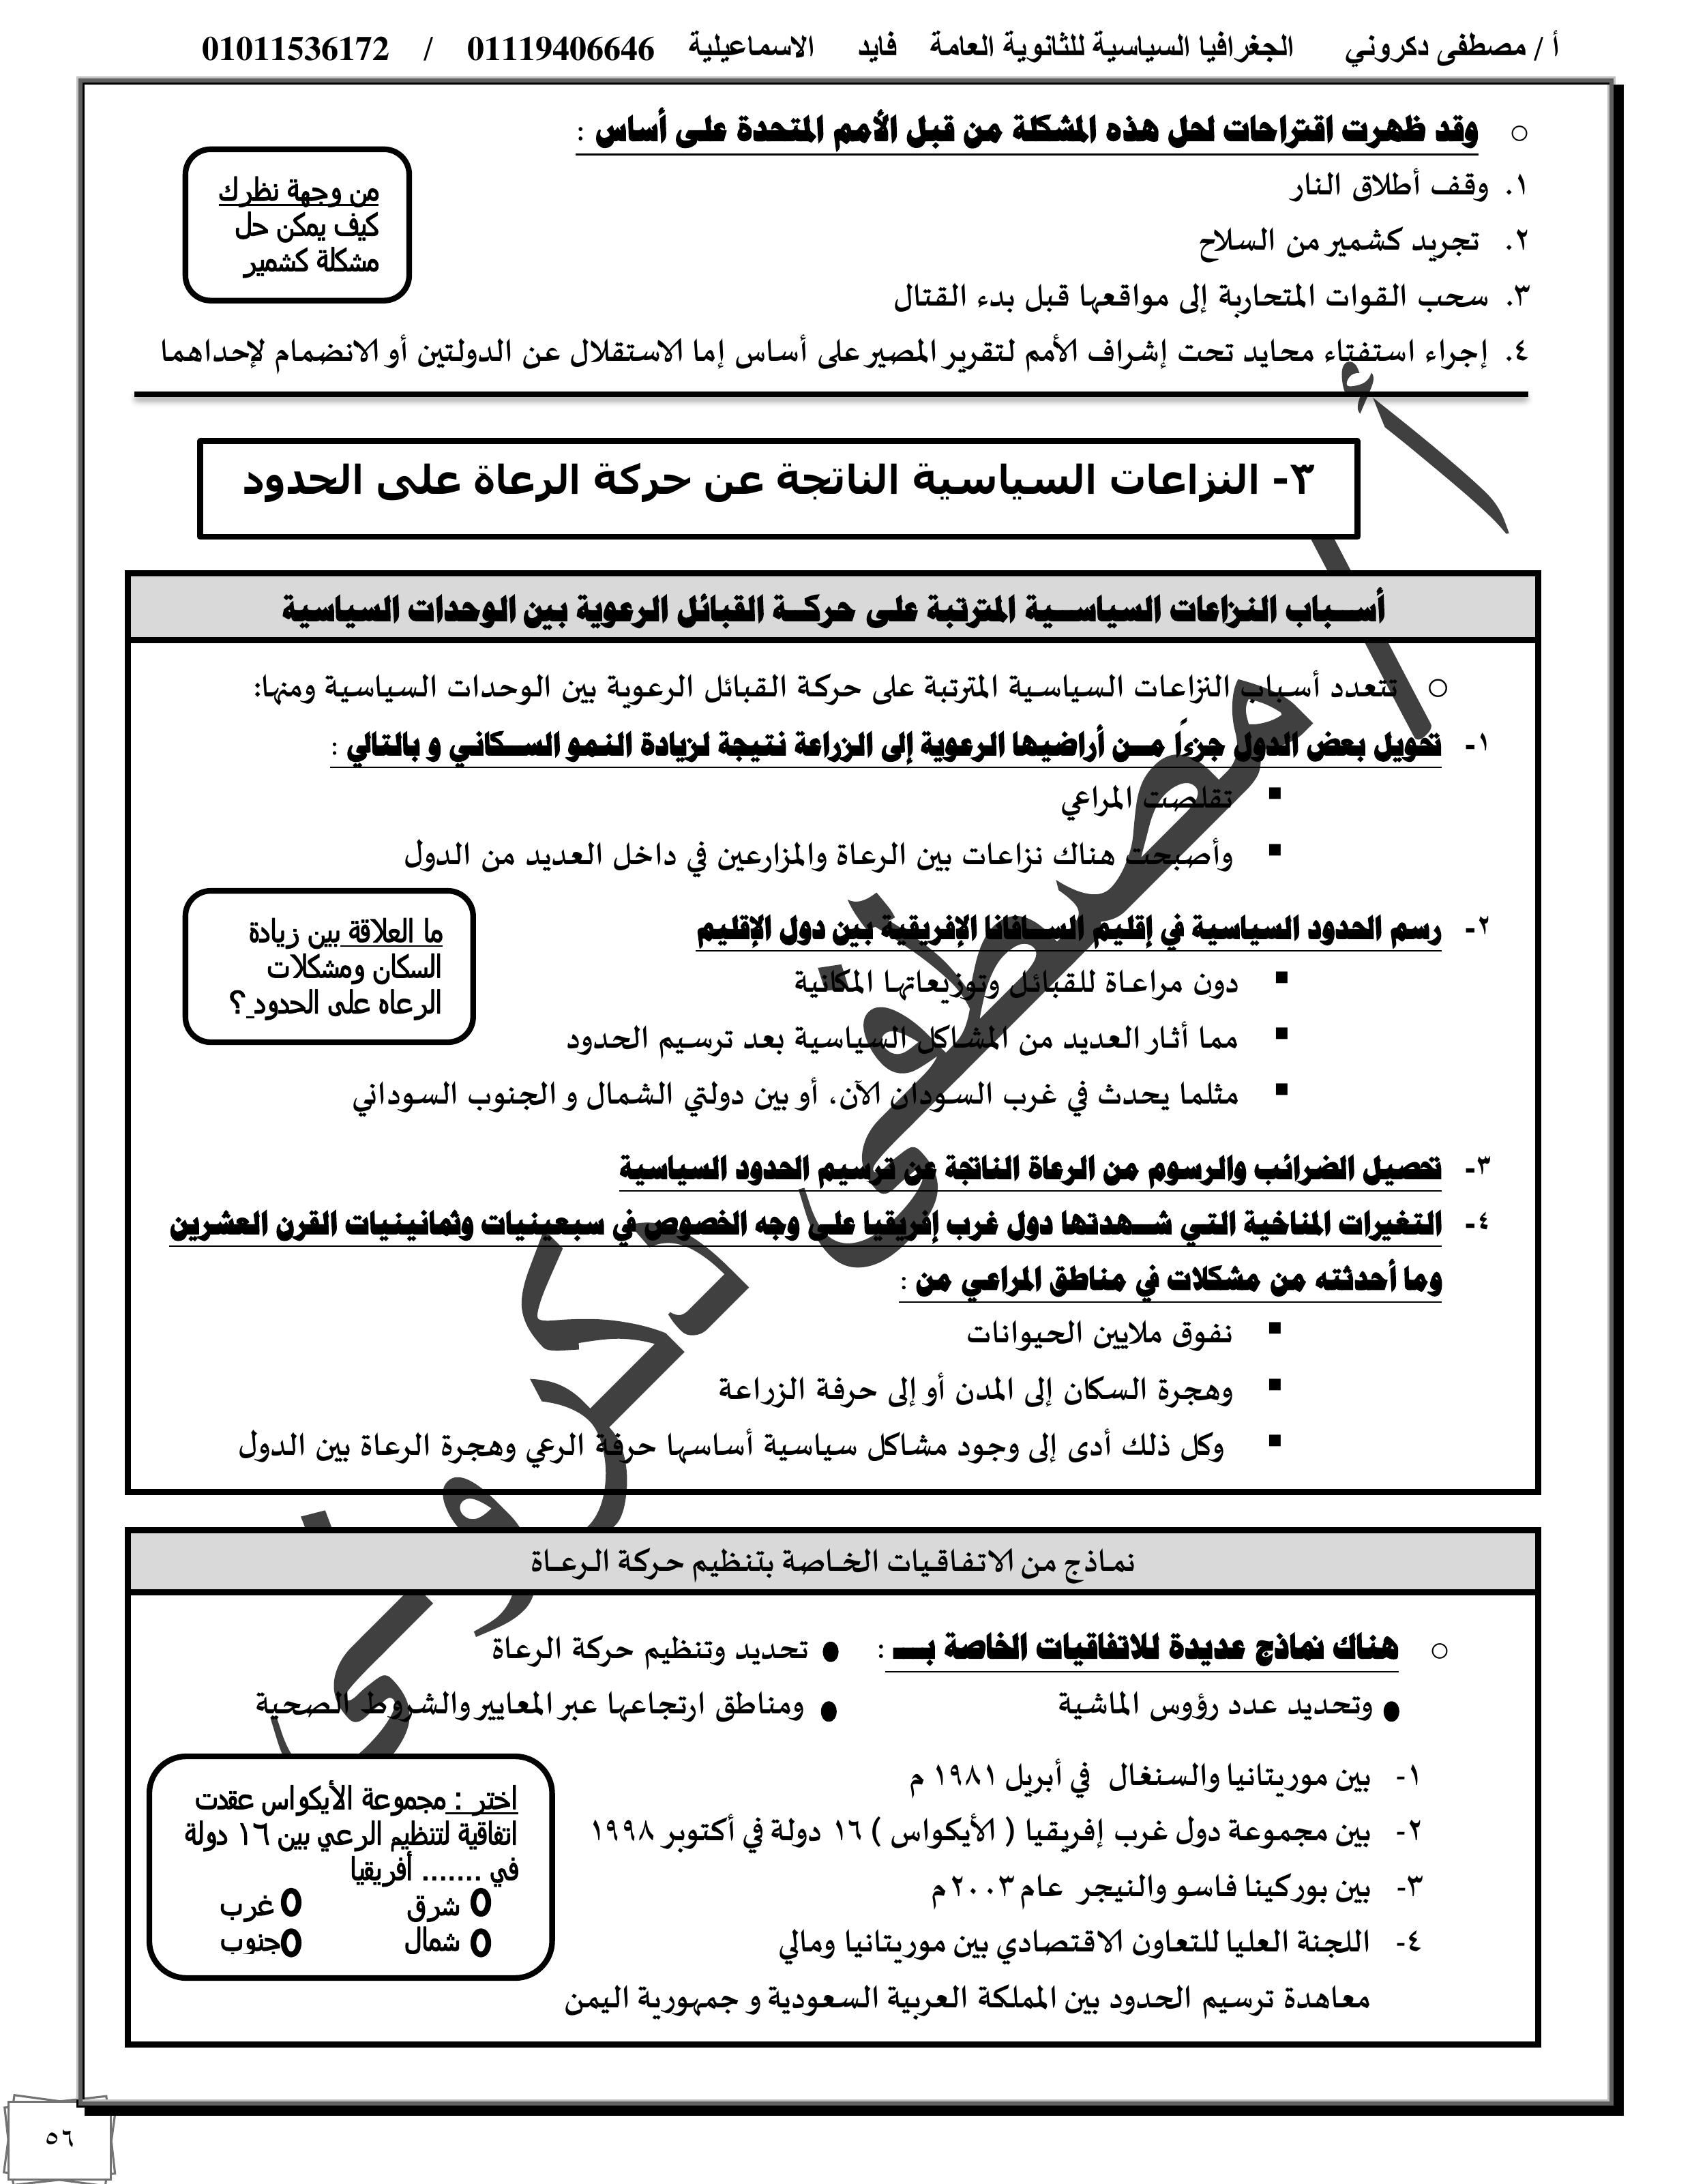 أ / مصطفى دكروني الجغرافيا السياسية للثانوية العامة فايد الاسماعيلية 01119406646 / 01011536172
○ وقد ظهرت اقتراحات لحل هذه المشكلة من قبل الأمم المتحدة على أساس :
١. وقف أطلاق النار
٢. تجريد كشمير من السلاح
٣. سحب القوات المتحاربة إلى مواقعها قبل بدء القتال
٤. إجراء استفتاء محايد تحت إشراف الأمم لتقرير المصير على أساس إما الاستقلال عن الدولتين أو الانضمام لإحداهما
من وجهة نظرك
كيف يمكن حل
مشكلة كشمير
٣- النزاعات السياسية الناتجة عن حركة الرعاة على الحدود
أســباب النزاعات السياســية المترتبة على حركــة القبائل الرعوية بين الوحدات السياسية
○ تتعدد أسباب النزاعات السياسية المترتبة على حركة القبائل الرعوية بين الوحدات السياسية ومنها:
١- تحويل بعض الدول جزءاً مــن أراضيها الرعوية إلى الزراعة نتيجة لزيادة النمو الســكاني و بالتالي :
▪ تقلصت المراعي
▪ وأصبحت هناك نزاعات بين الرعاة والمزارعين في داخل العديد من الدول
٢- رسم الحدود السياسية في إقليم الســافانا الإفريقية بين دول الإقليم
▪ دون مراعاة للقبائل وتوزيعاتها المكانية
▪ مما أثار العديد من المشاكل السياسية بعد ترسيم الحدود
▪ مثلما يحدث في غرب السودان الآن، أو بين دولتي الشمال و الجنوب السوداني
ما العلاقة بين زيادة
السكان ومشكلات
الرعاه على الحدود ؟
٣- تحصيل الضرائب والرسوم من الرعاة الناتجة عن ترسيم الحدود السياسية
٤- التغيرات المناخية التي شــهدتها دول غرب إفريقيا على وجه الخصوص في سبعينيات وثمانينيات القرن العشرين
وما أحدثته من مشكلات في مناطق المراعي من :
▪ نفوق ملايين الحيوانات
▪ وهجرة السكان إلى المدن أو إلى حرفة الزراعة
▪ وكل ذلك أدى إلى وجود مشاكل سياسية أساسها حرفة الرعي وهجرة الرعاة بين الدول
نماذج من الاتفاقيات الخاصة بتنظيم حركة الرعاة
○ هناك نماذج عديدة للاتفاقيات الخاصة بــ : ● تحديد وتنظيم حركة الرعاة
● وتحديد عدد رؤوس الماشية ● ومناطق ارتجاعها عبر المعايير والشروط الصحية
١- بين موريتانيا والسنغال في أبريل ١٩٨١ م
٢- بين مجموعة دول غرب إفريقيا ( الأيكواس ) ١٦ دولة في أكتوبر ١٩٩٨
٣- بين بوركينا فاسو والنيجر عام ٢٠٠٣ م
٤- اللجنة العليا للتعاون الاقتصادي بين موريتانيا ومالي
معاهدة ترسيم الحدود بين المملكة العربية السعودية و جمهورية اليمن
اختر : مجموعة الأيكواس عقدت
اتفاقية لتنظيم الرعي بين ١٦ دولة
في ....... أفريقيا
O شرق O غرب
O شمال O جنوب
أ / مصطفى دكروني
٥٦